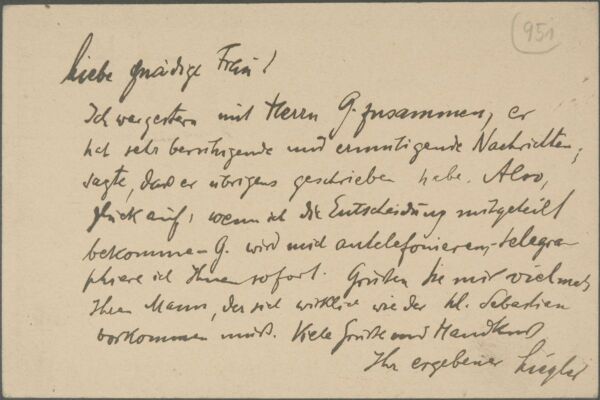 951
Liebe gnädige Frau!
Ich war gestern mit Herrn G. zusammen, er
hat sehr beruhigende und ermutigende Nachrichten,
sagte, dass er übrigens geschrieben habe. Also,
Glück auf, wenn ich die Entscheidung mitgeteilt
bekomme – G. wird mich antelefonieren, – telegra-
phiere ich Ihnen sofort. Grüßen Sie mir vielmals
Ihren Mann, der sich wirklich wie der hl. Sebastian
vorkommen muß. Viele Grüße und Handkuß
Ihr ergebener